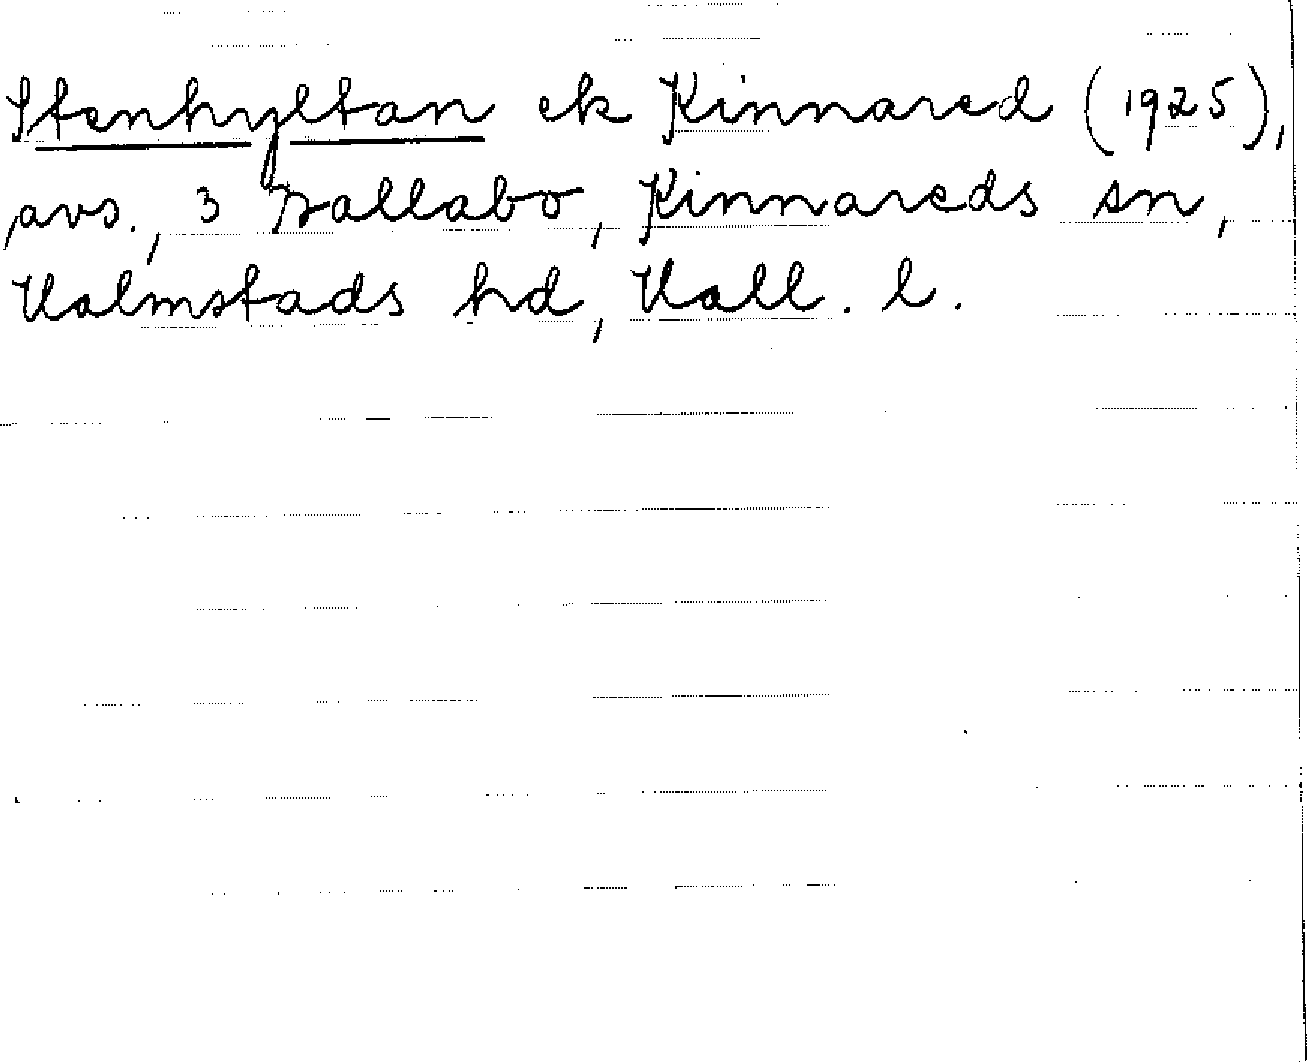 Stenhyltan ek Kinnared (1925),
avs., 3 Ballabo, Kinnareds sn,
Halmstads hd, Hall. l.